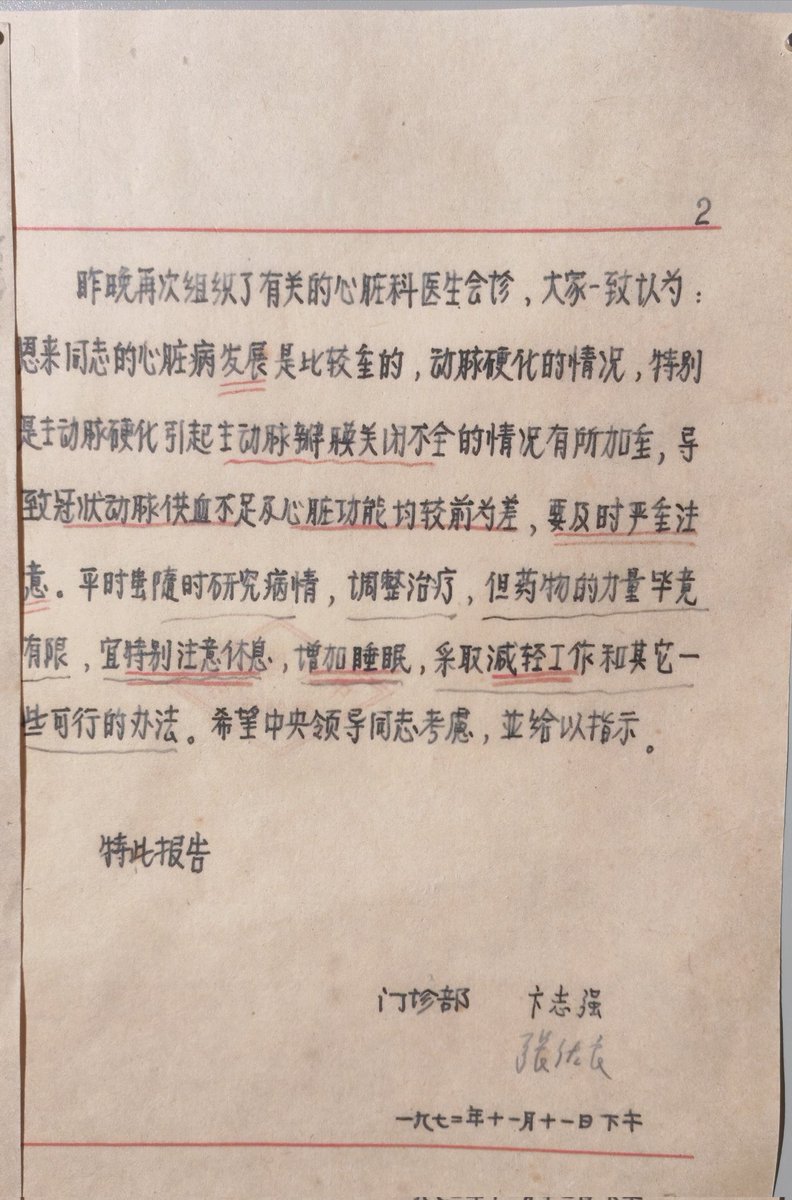 2
昨晚再次组织了有关的心脏科医生会诊，大家一致认为：
恩来同志的心脏病发展是比较重的，动脉硬化的情况，特别
是主动脉硬化引起主动脉瓣膜关闭不全的情况有所加重，导
致冠状动脉供血不足及心脏功能均较前为差，要及时严重注
意。平时曾随时研究病情，调整治疗，但药物的力量毕竟
有限，宜特别注意休息，增加睡眠，采取减轻工作和其它一
些可行的办法。希望中央领导同志考虑，並给以指示。
特此报告
门诊部 卞志强
张佐良
一九七二年十一月十一日下午